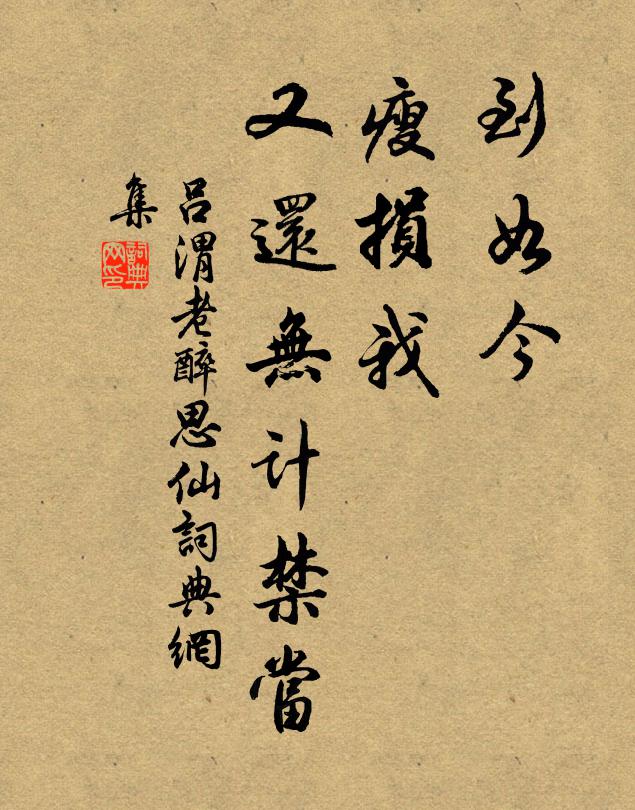 到如今
瘦損我
又還無計禁當
呂渭老醉思仙詞典網
集
詞典
网印